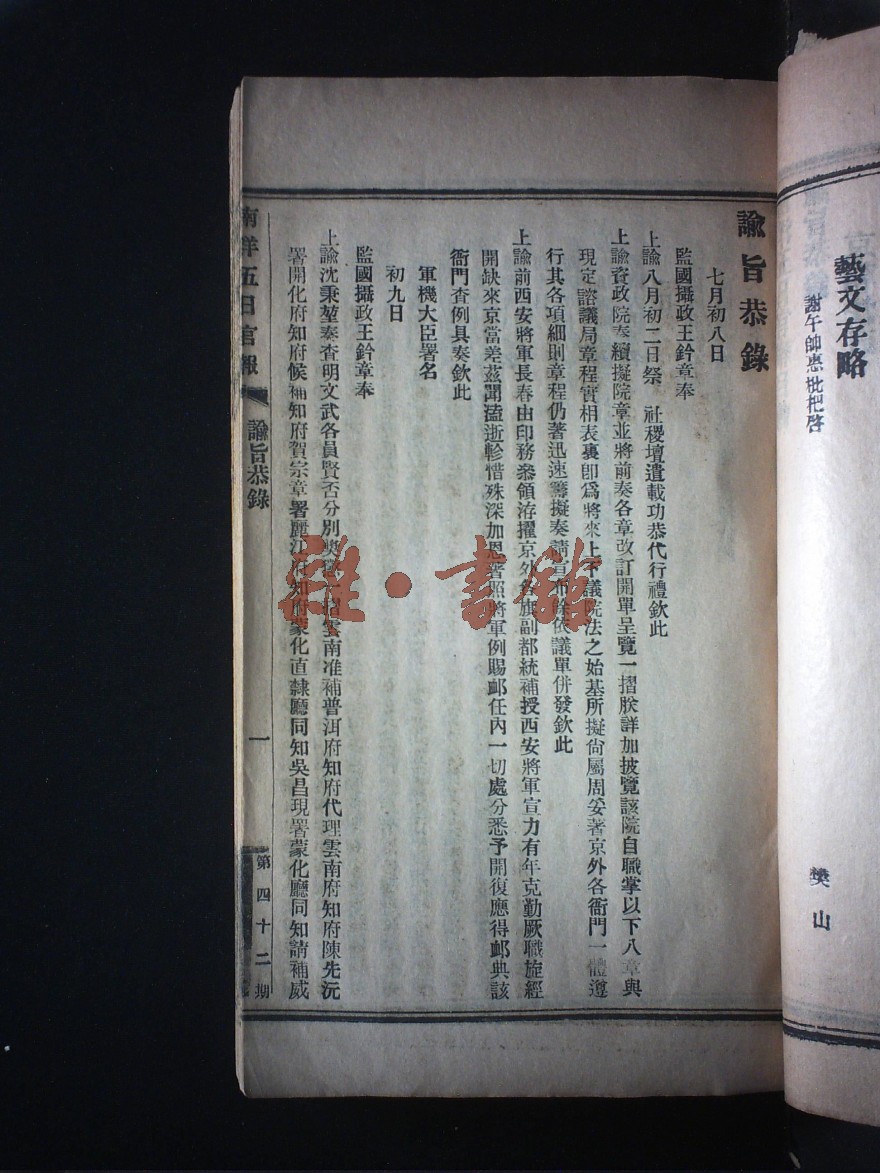 藝文存略
謝午帥惠枇杷啓
樊山
諭旨恭錄
七月初八日
監國攝政王鈐章奉
上諭八月初二日祭 社稷壇遣載功恭代行禮欽此
上諭資政院奏續擬院章並將前奏各章改訂開單呈覽一摺朕詳加披覽該院自職掌以下八章與
現定諮議局章程實相表裏即爲將來上下議院法之始基所擬尙屬周妥著京外各衙門一體遵
行其各項細則章程仍著迅速籌擬奏請宣布餘依議單併發欽此
上諭前西安將軍長春由印務叅領洊擢京外各旗副都統補授西安將軍宣力有年克勤厥職旋經
開缺來京當差茲聞溘逝軫惜殊深加恩著照將軍例賜邮任內一切處分悉予開復應得邮典該
衙門查例具奏欽此
軍機大臣署名
初九日
監國攝政王鈐章奉
上諭沈秉堃奏查明文武各員賢否分別獎懲一摺雲南准補普洱府知府代理雲南府知府陳先沅
署開化府知府候補知府賀宗章署麗江府知府蒙化直隸廳同知吳昌現署蒙化廳同知請補威
南洋五日官報
諭旨恭錄
一
第四十二期
雜·書館